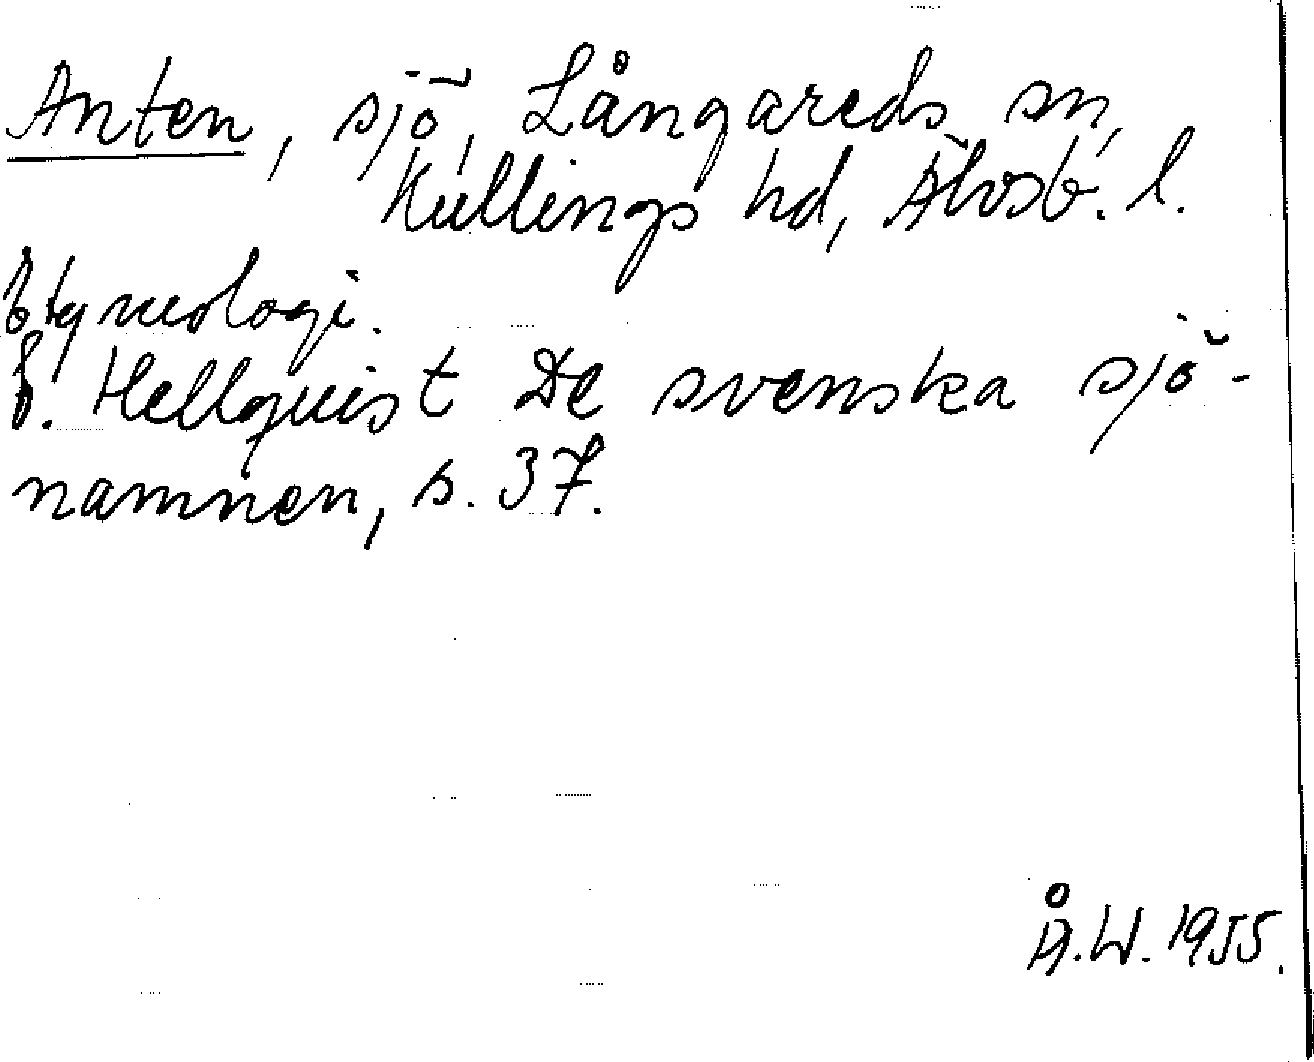 Anten, sjö, Långareds sn,
Kullings hd, Älvsb. l.
Etymologi.
E. Hellquist De svenska sjö-
namnen, s. 37.
Å.W. 1955.